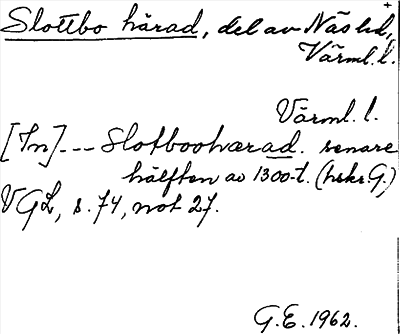 Slottbo härad, del av Näs hd,
Värml. l.
Värml. l.
[In]--- Slotbooharad. senare
hälften av 1300-t. (hskr G.)
VGL, s. 74, not 27.
G.E. 1962.